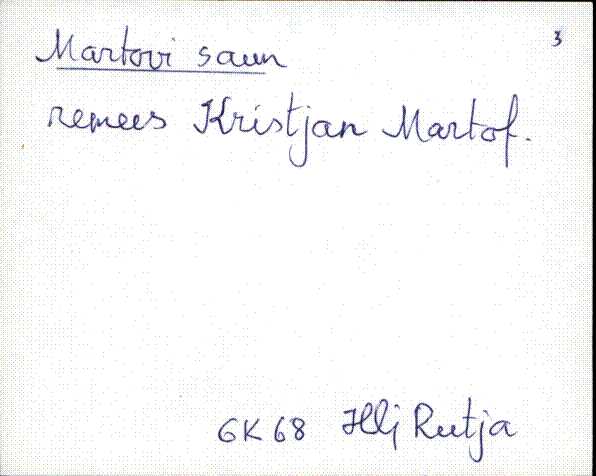 3
Martovi saun
remees Kristjan Martof.
GK 68 Hlj Rutja